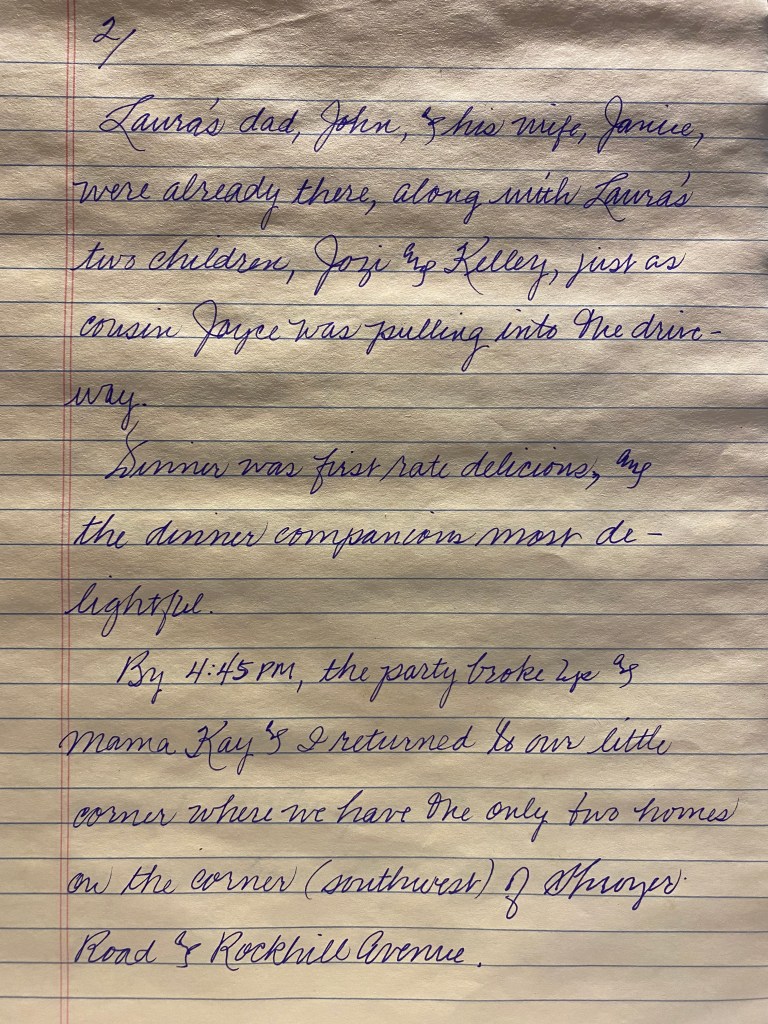 2/
Laura's dad, John, & his wife, Janice,
were already there, along with Laura's
two children, Jozi and Kelley, just as
cousin Joyce was pulling into the drive-
way.
Dinner was first rate delicious, and
the dinner companions most de-
lightful.
By 4:45 PM, the party broke up &
Mama Kay & I returned to our little
corner where we have the only two homes
on the corner (southwest) of
Road & Rockhill Avenue.